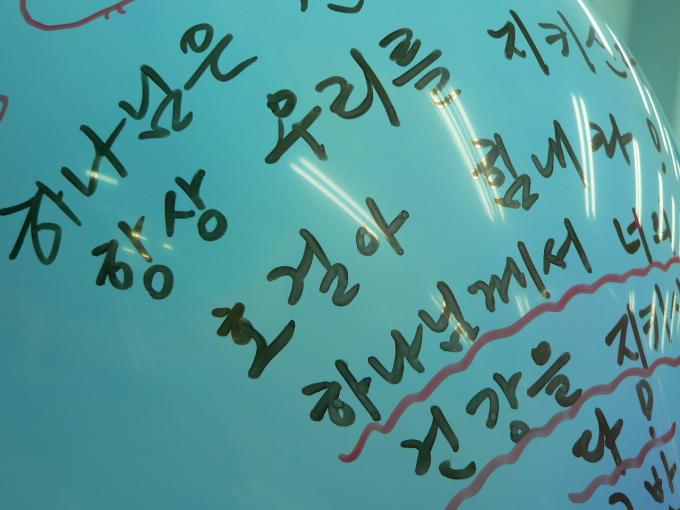 하나님은
항상 우리를 지키신
호걸아 힘내라!
하나님께서 너의
건강을 지키
다!